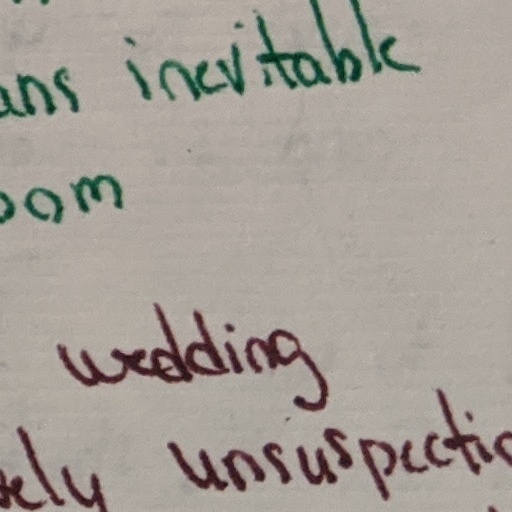 ans inevitable
oom
wedding
ely unsuspectin